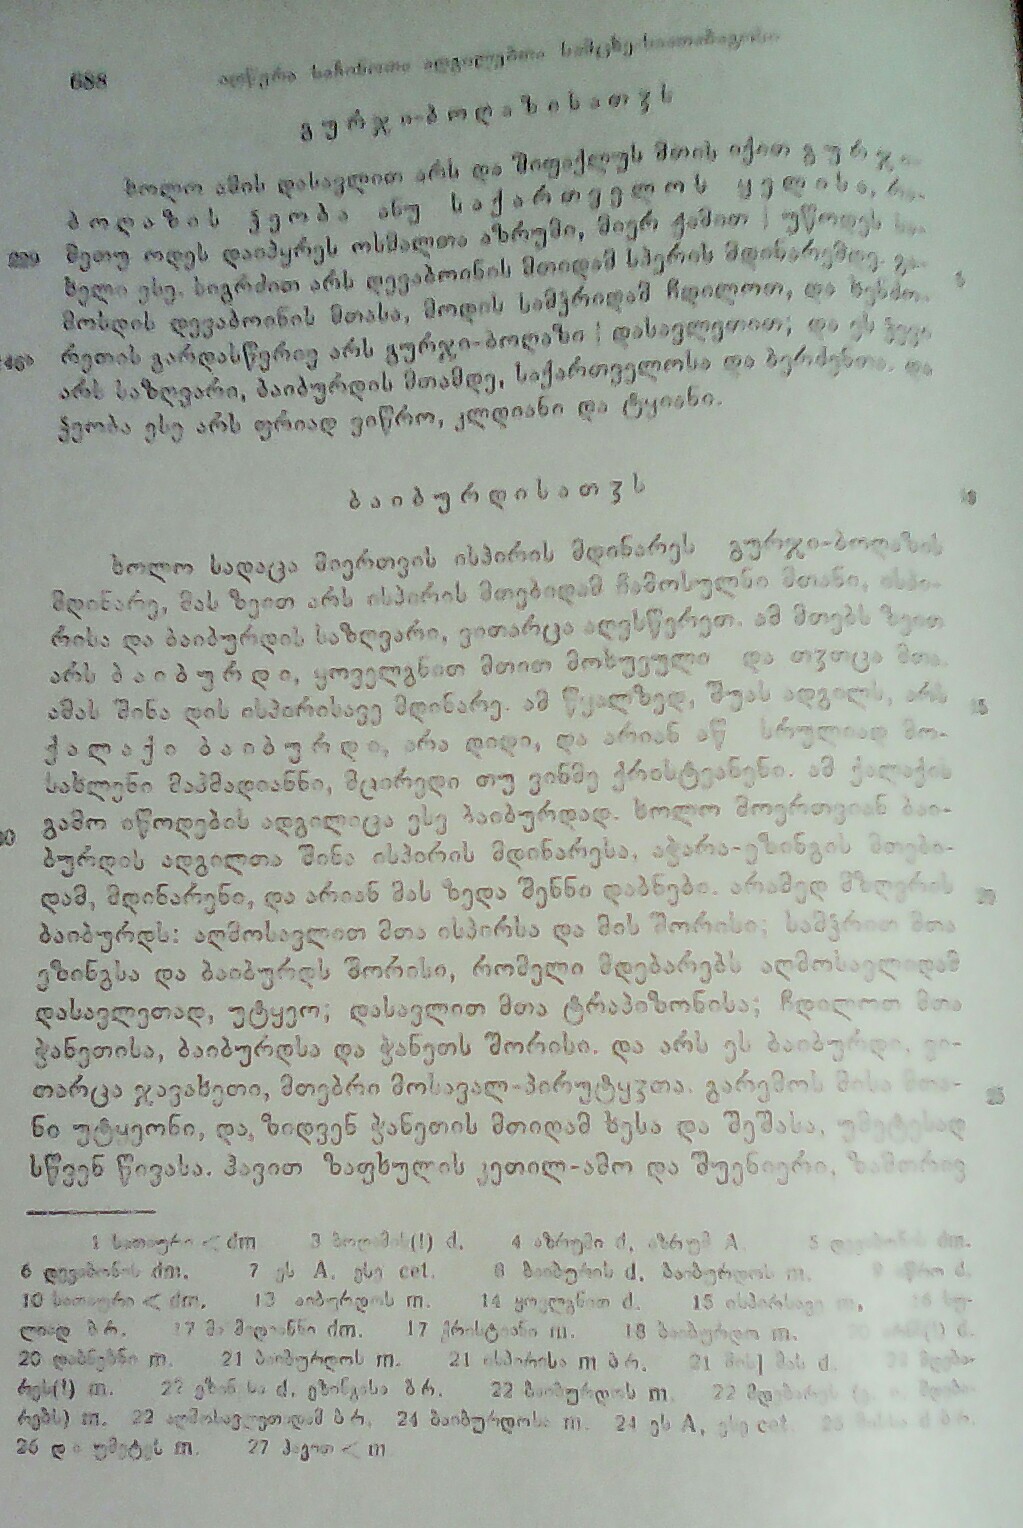 688 აღწერა საჩინოთა ადგილებთა სამცხე-საათაბაგოსი
გურჯი-ბოღაზისათჳს
ხოლო ამის დასავლით არს და შიფაქლუს მთის იქით გურჯი-
ბოღაზის ჭეობა ანუ საქართველოს ყელისა, რა-
229 მეთუ ოდეს დაიპყრეს ოსმალთა აზრუმი, მიერ ჟამით | უწოდეს
ხელი ესე. სიგრძით არს დევაბოინის მთიდამ სპერის მდინარემდე. 5
მოსდის დევაბოინის მთასა, მოდის სამჴრიდამ ჩდილოთ, და
რეთის გარდასწვრივ არს გურჯი-ბოღაზი | დასავლეთით; და ეს
არს საზღვარი, ბაიბურდის მთამდე, საქართველოსა და ბერძენთა. და
ჭეობა ესე არს ფრიად ვიწრო, კლდიანი და ტყიანი.
ბაიბურდისათჳს 10
ხოლო სადაცა მიერთვის ისპირის მდინარეს გურჯი-ბოღაზის
მდინარე, მას ზეით არს ისპირის მთებიდამ ჩამოსულნი მთანი, ისპი-
რისა და ბაიბურდის საზღვარი, ვითარცა აღვსწერეთ. ამ მთებს ზეით
არს ბაიბურდი, ყოველგნით მთით მოხუეული და თჳთცა მთა.
ამას შინა დის ისპირისავე მდინარე. ამ წყალზედ, შუას ადგილს, არს 15
ქალაქი ბაიბურდი, არა დიდი, და არიან აწ სრულიად მო-
სახლენი მაჰმადიანნი, მცირედი თუ ვინმე ქრისტეანენი. ამ ქალაქის
გამო იწოდების ადგილიცა ესე ბაიბურდად. ხოლო მოერთვიან ბაი-
ბურდის ადგილთა შინა ისპირის მდინარესა, აჭარა-ეზინგის მთები-
დამ, მდინარენი, და არიან მას ზედა შენნი დაბნები. არამედ მზღვრის 20
ბაიბურდს: აღმოსავლით მთა ისპირსა და მის შორისი; სამჴრით მთა
ეზინგსა და ბაიბურდს შორისი, რომელი მდებარებს აღმოსავლიდამ
დასავლეთად, უტყეო; დასავლით მთა ტრაპიზონისა; ჩდილოთ მთა
ჭანეთისა, ბაიბურდსა და ჭანეთს შორისი. და არს ეს ბაიბურდი, ვი-
თარცა ჯავახეთი, მთებრი მოსავალ-პირუტყჳთა. გარემოს მისა მთა- 25
ნი უტყეონი, და, ზიდვენ ჭანეთის მთიდამ ხესა და შეშასა, უმეტესად
სწვენ წივასა. ჰავით ზაფხულის კეთილ-ამო და შუენიერი, ზამთრივ
1 სათაური < dm 3 d. 4 აზრუმი d, აზრუმ A. 5 dm.
6 dm. 7 ეს A, ესე cet. 8 ბაიბურის d, ბაიბურდოს m. d.
10 სათაური < dm. 13 აიბურდის m. 14 ყოელგნით d. 15 ისპირსავე m,
ლიად ბრ. 17 dm. 17 ქრისტიანი m. 18 ბაიბურდო m. d.
20 დაბნებნი m. 21 ბაიბურდოს m. 21 ისპირისა m ბრ. 21 მის] მას d.
რეს(!) m. 22 d, ეზინგისა ბრ. 22 ბაიბურდოს m. 22
რებს) m. 22 აღმოსავლეთიდამ ბრ. 24 ბაიბურდოსა m. 24 ეს A, ესე cet.
26 და უმეტეს m. 27 ჰავით < m